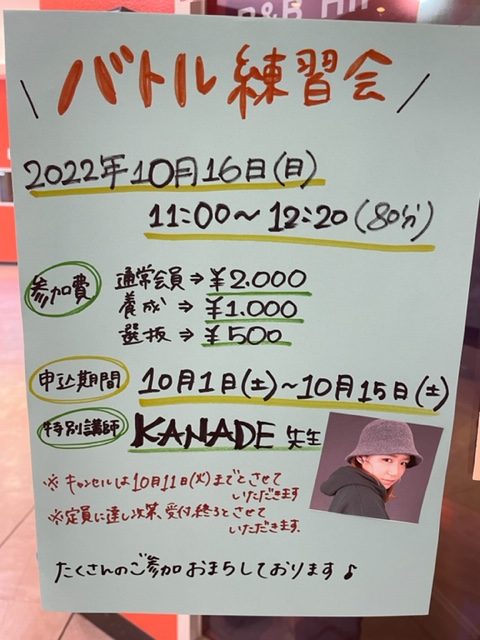 R&B HI
\ バトル練習会 /
2022年10月16日(日)
11:00〜12:20(80分)
参加費
通常会員→¥2.000
養成→¥1.000
選抜→¥500
申込期間 10月1日(土)〜10月15日(土)
特別講師 KANADE 先生
※キャンセルは10月11日(火)までとさせて
いただきます
※定員に達し次第、受付終了とさせて
いただきます.
たくさんのご参加おまちしております♪